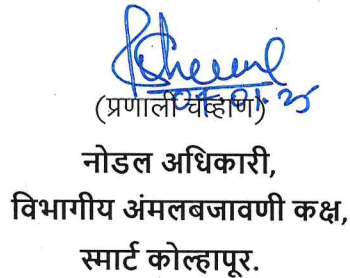 (प्रणाली चव्हाण)
नोडल अधिकारी,
विभागीय अंमलबजावणी कक्ष,
स्मार्ट कोल्हापूर.